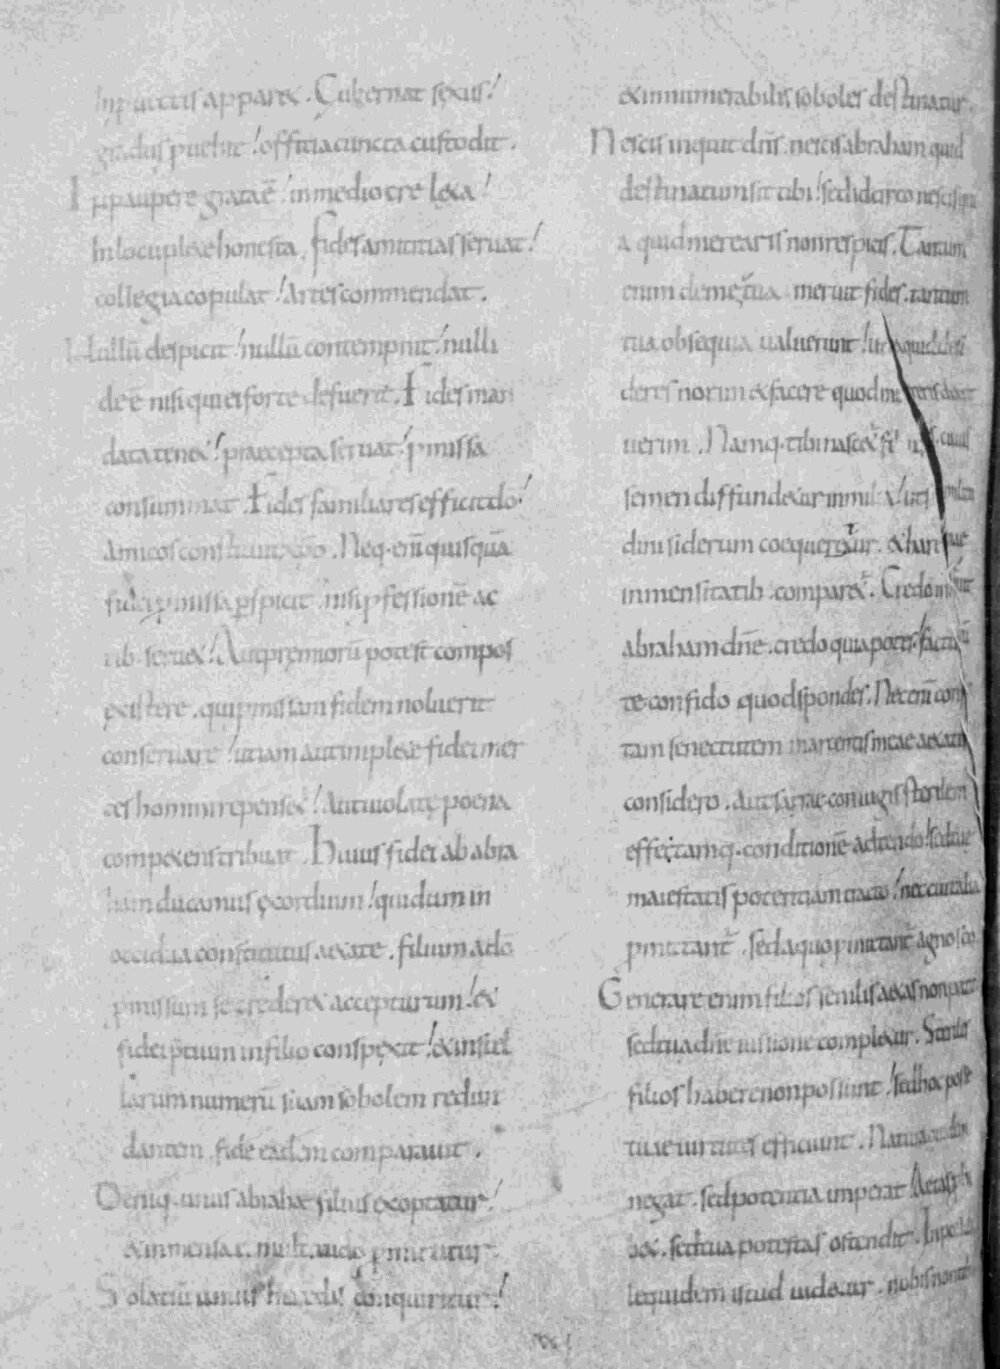 In p uectis apparet. Gubernat sexus!
gradus puehit! officia cuncta custodit.
In paupere grata ē! in mediocre leta!
In locuplete honesta, fides amicitias seruat!
collegia copulat! Artes commendat.
Nullū despicit! nullū contempnit! nulli
deē nisi qui ei forte defuerit. Fides man
data tenet! praecepta seruat! pmissa
consummat. Fides familiares efficit dō!
Amicos constituit. Neq. eni quisquā
fidei pmissa pspicit. nisi pfessionē ac
tib. seruet! Aut premiorū potest compos
existere. qui pmissam fidem noluerit
conseruare! ut iam aut implete fidei mer
ces homini repenset! Aut uiolate poena
competens tribuat. Huius fidei ab abra
ham ducamus exordium! qui dum in
occidua constitutus aetate. filium a dō
pmissum se crederet accepturum! et
fidei ptium in filio conspexit! et in stel
larum numerū suam sobolem redun
dantem, fide eadem comparauit.
Deniq. unus abrahae filius exoptatur!
et inmensa multitudo pmittitur.
Solatiū unius heredis conquiritur!
et innumerabilis soboles destinatur.
Nescis inquit dn̄s. nescis abraham quid
destinatum sit tibi! sed idcirco nescis
quid merearis non respicis. Tantum
enim de me tua meruit fides. tantum
tua obsequia ualuerunt!
deres norim et facere quod me
uerim. Namq. tibi nascet fil cuius
semen diffundetur in
dini siderum coequeretur. et harenae
inmensitatib. comparet. Credo inquit
abraham dn̄e. credo quia potes! factu
te confido quod spondes. Nec eni con
tam senectutem marcentis meae aetatis
considero. Aut sarrae coniugis sterilem
effetamq. conditionē adtendo! sed tue
maiestatis potentiam tracto! nec cui talia
pmittant. sed a quo pmittant agnosco
Generare enim filios senilis aetas non potest
sed tua dn̄e iussione completur. Steriles
filios habere non possunt! sed hoc posse
tuae uirtutes efficiunt. Natura
negat. sed potentia imperat Aetas
. sed tua potestas ostendit.
le quidem istud uidetur. nobis non